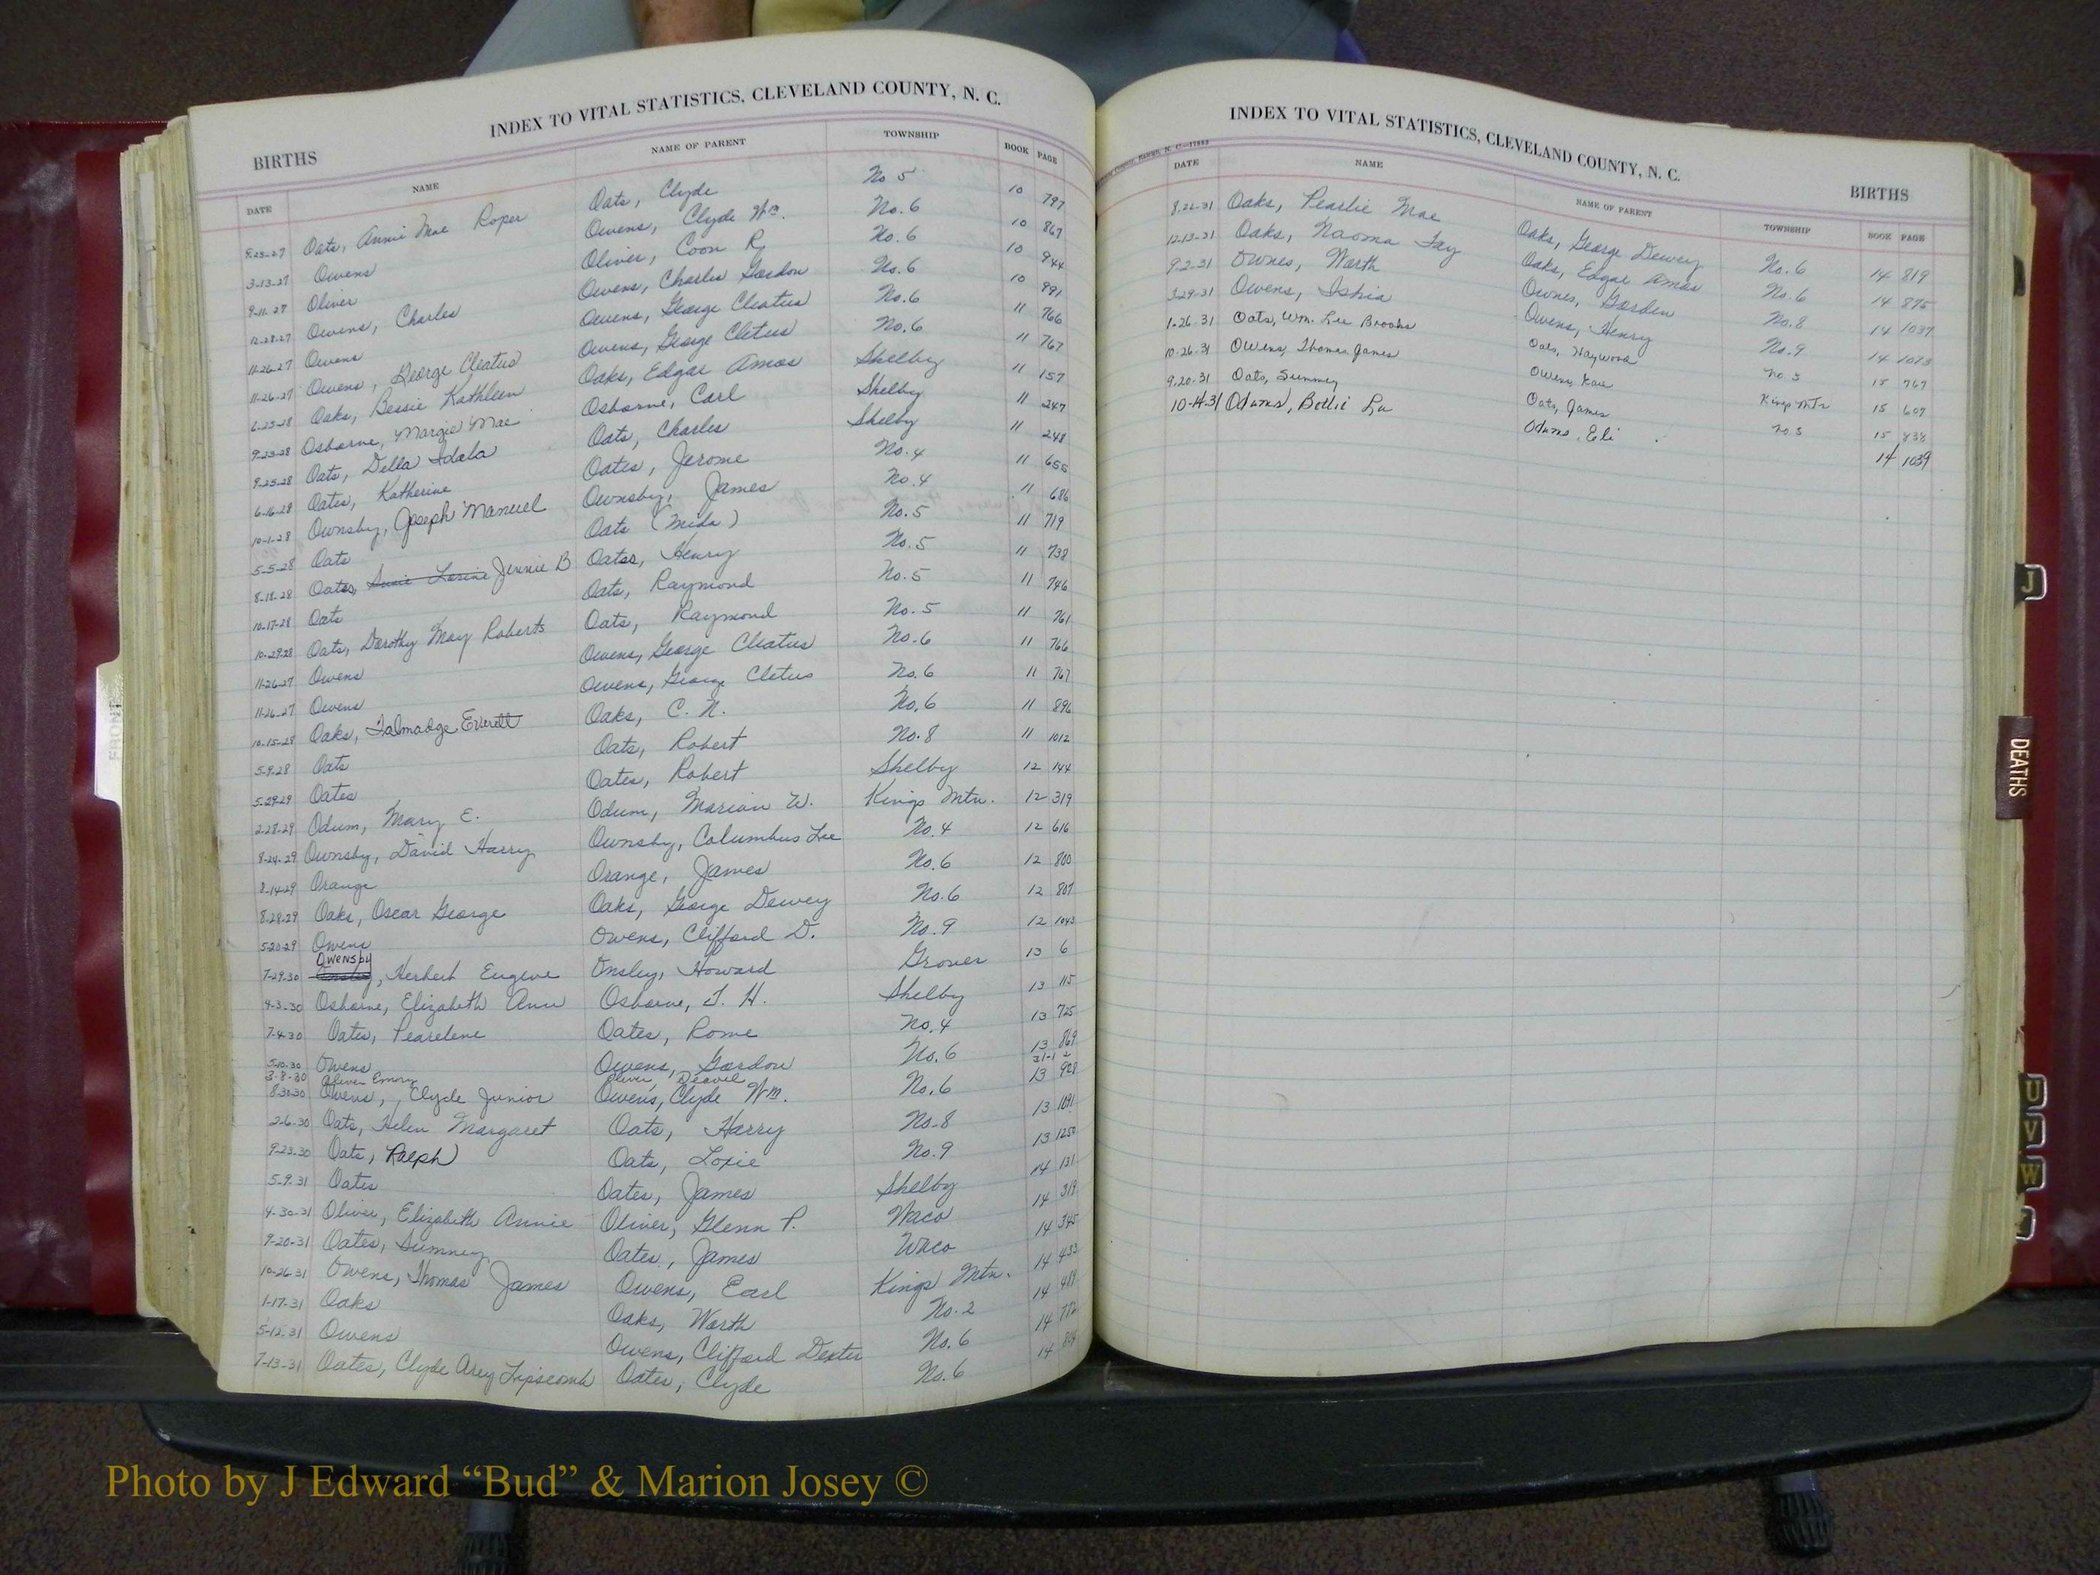 INDEX TO VITAL STATISTICS, CLEVELAND COUNTY, N. C.
BIRTHS
DATE NAME NAME OF PARENT TOWNSHIP BOOK PAGE
9-25-27 Oats, Annie Mae Roper Oats, Clyde No 5 10 797
3-13-27 Owens Owens, Clyde Wm. No. 6 10 867
9-11-27 Oliver Oliver, Coon R. No. 6 10 944
12-28-27 Owens, Charles Owens, Charles Gordon No. 6 10 991
11-26-27 Owens Owens, George Cleatus No. 6 11 766
11-26-27 Owens, George Cleatus Owens, George Cletus No. 6 11 767
6-25-28 Oaks, Bessie Kathleen Oaks, Edgar Amos Shelby 11 157
9-23-28 Osborne, Margie Mae Osborne, Carl Shelby 11 247
9-25-28 Oats, Della Idala Oats, Charles Shelby 11 248
6-16-28 Oates, Katherine Oates, Jerome No. 4 11 655
10-1-28 Ownsby, Joseph Manuel Ownsby, James No. 4 11 686
5-5-28 Oats Oats (Mida) No. 5 11 719
8-18-28 Oates, Susie Lorine Jennie B Oates, Henry No. 5 11 738
10-17-28 Oats Oats, Raymond No. 5 11 746
10-29-28 Oats, Dorothy May Roberts Oats, Raymond No. 5 11 761
11-26-27 Owens Owens, George Cleatus No. 6 11 766
11-26-27 Owens Owens, George Cletus No. 6 11 767
10-15-28 Oaks, Talmadge Everett Oaks, C. N. No. 6 11 896
5-9-28 Oats Oats, Robert No. 8 11 1012
5-29-29 Oates Oates, Robert Shelby 12 144
2-28-29 Odum, Mary E. Odum, Marion W. Kings Mtn. 12 319
8-24-29 Ownsby, David Harry Ownsby, Columbus Lee No. 4 12 616
8-14-29 Orange Orange, James No. 6 12 800
8-28-29 Oaks, Oscar George Oaks, George Dewey No. 6 12 807
5-20-29 Owens Owens, Clifford D. No. 9 12 1043
Owensby
7-29-30 Onsley, Herbert Eugene Onsley, Howard Grover 13 6
4-3-30 Osborne, Elizabeth Ann Osborne, T. H. Shelby 13 115
7-4-30 Oates, Pearelene Oates, Rome No. 4 13 725
5-10-30 Owens Owens, Gordon No. 6 13 869
3-8-30 Oliver Emory Oliver, Deavel 31-1 2
8-30-30 Owens, Clyde Junior Owens, Clyde Wm. No. 6 13 908
2-6-30 Oats, Helen Margaret Oats, Harry No. 8 13 1091
9-23-30 Oats, Ralph Oats, Loxie No. 9 13 1250
5-9-31 Oates Oates, James Shelby 14 131
4-30-31 Oliver, Elizabeth Annie Oliver, Glenn P. Waco 14 319
9-20-31 Oates, Sumney Oates, James Waco 14 345
10-26-31 Owens, Thomas James Owens, Earl Kings Mtn. 14 433
1-17-31 Oaks Oaks, Worth No. 2 14 489
5-12-31 Owens Owens, Clifford Dexter No. 6 14 772
7-13-31 Oates, Clyde Arey Lipscomb Oates, Clyde No. 6 14 804
INDEX TO VITAL STATISTICS, CLEVELAND COUNTY, N. C.
BIRTHS
DATE NAME NAME OF PARENT TOWNSHIP BOOK PAGE
8-22-31 Oaks, Pearlie Mae Oaks, George Dewey No. 6 14 819
12-13-31 Oaks, Naoma Fay Oaks, Edgar Amos No. 6 14 875
9-2-31 Ownes, Worth Ownes, Gorden No. 8 14 1037
3-29-31 Owens, Ishia Owens, Henry No. 9 14 1073
1-26-31 Oats, Wm. Lee Brooks Oats, Haywood No. 5 15 767
10-26-31 Owens, Thomas James Owens, Kare Kings Mtn 15 607
9-20-31 Oats, Sumney Oats, James No. 5 15 838
10-14-31 Odums, Bettie Lu Odums, Eli 14 1039
FRONT
J
DEATHS
U
V
W
Photo by J Edward “Bud” & Marion Josey ©